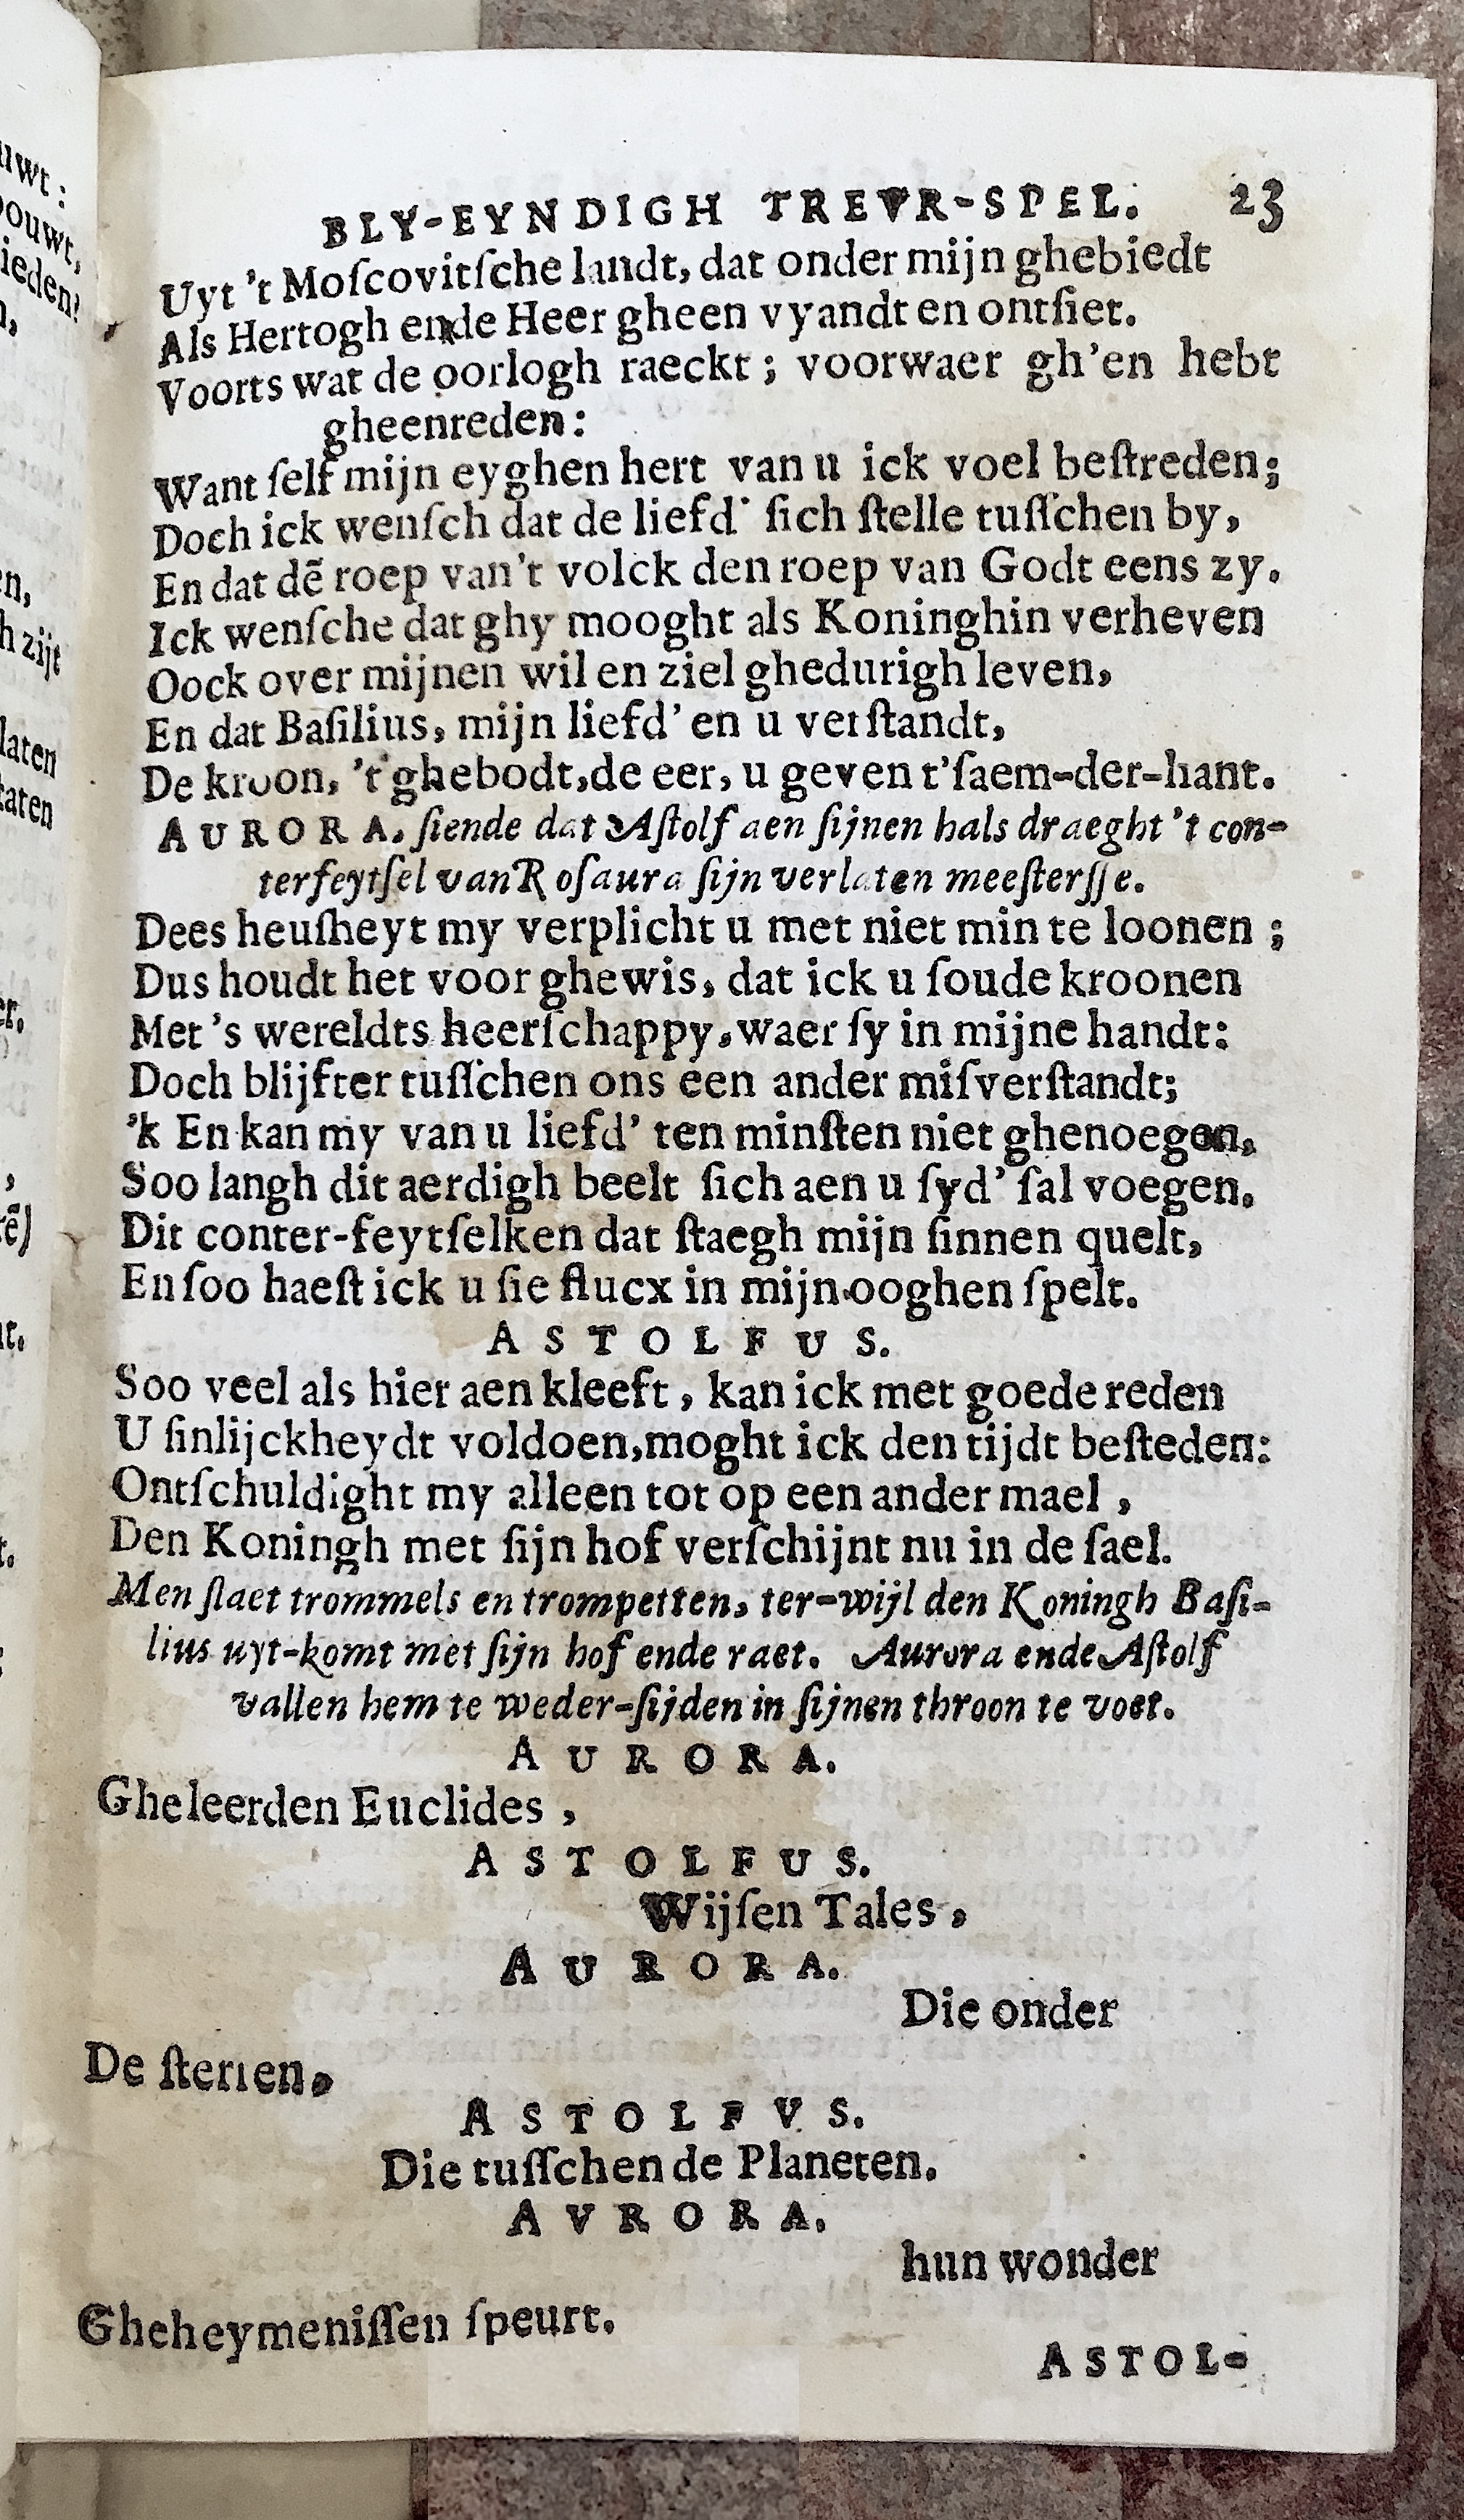 BLY-EYNDIGH TREVR-SPEL. 23
Uyt 't Moſcovitſche landt, dat onder mijn ghebiedt
Als Hertogh ende Heer gheen vyandt en ontſiet.
Voorts wat de oorlogh raeckt ; voorwaer gh'en hebt
gheenreden:
Want ſelf mijn eyghen hert van u ick voel beſtreden;
Doch ick wenſch dat de liefd' ſich ſtelle tuſſchen by,
En dat dẽ roep van't volck den roep van Godt eens zy.
Ick wenſche dat ghy mooght als Koninghin verheven
Oock over mijnen wil en ziel ghedurigh leven,
En dat Baſilius, mijn liefd' en u verſtandt,
De kroon, 't ghebodt, de eer, u geven t'ſaem-der-hant.
AURORA. ſiende dat Aſtolf aen ſijnen hals draeght 't con-
terfeytſel van Roſaura ſijn verlaten meeſterſſe.
Dees heuſheyt my verplicht u met niet min te loonen ;
Dus houdt het voor ghewis, dat ick u ſoude kroonen
Met 's wereldts heerſchappy, waer ſy in mijne handt:
Doch blijfter tuſſchen ons een ander miſverſtandt;
'k En kan my van u liefd' ten minſten niet ghenoegen,
Soo langh dit aerdigh beelt ſich aen u ſyd' ſal voegen.
Dit conter-feytſelken dat ſtaegh mijn ſinnen quelt,
En ſoo haeſt ick u ſie flucx in mijn ooghen ſpelt.
ASTOLFUS.
Soo veel als hier aen kleeft, kan ick met goede reden
U ſinlijckheydt voldoen, moght ick den tijdt beſteden:
Ontſchuldight my alleen tot op een ander mael,
Den Koningh met ſijn hof verſchijnt nu in de ſael.
Men ſlaet trommels en trompetten, ter-wijl den Koningh Baſi-
lius uyt-komt met ſijn hof ende raet. Aurora ende Aſtolf
vallen hem te weder-ſijden in ſijnen throon te voet.
AURORA.
Gheleerden Euclides,
ASTOLFUS.
Wijſen Tales,
AURORA.
Die onder
De ſterren.
ASTOLFVS.
Die tuſſchen de Planeten.
AVRORA.
hun wonder
Gheheymeniſſen ſpeurt.
ASTOL-